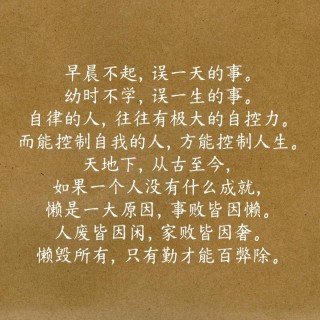 早晨不起，误一天的事。
幼时不学，误一生的事。
自律的人，往往有极大的自控力。
而能控制自我的人，方能控制人生。
天地下，从古至今，
如果一个人没有什么成就，
懒是一大原因，事败皆因懒。
人废皆因闲，家败皆因奢。
懒毁所有，只有勤才能百弊除。